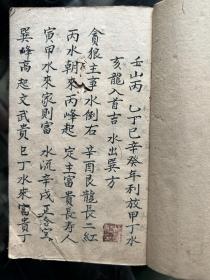 壬山丙 乙丁巳辛癸年利放甲丁水
亥龍入首吉 水出巽方
貪狼主事水倒右 辛酉艮龍長二紅
丙水朝來丙峰起 定主富貴長寿人
寅甲水來家則富 水流辛戌正合宜
巽峰高起文武貴 巳丁水來富貴丁